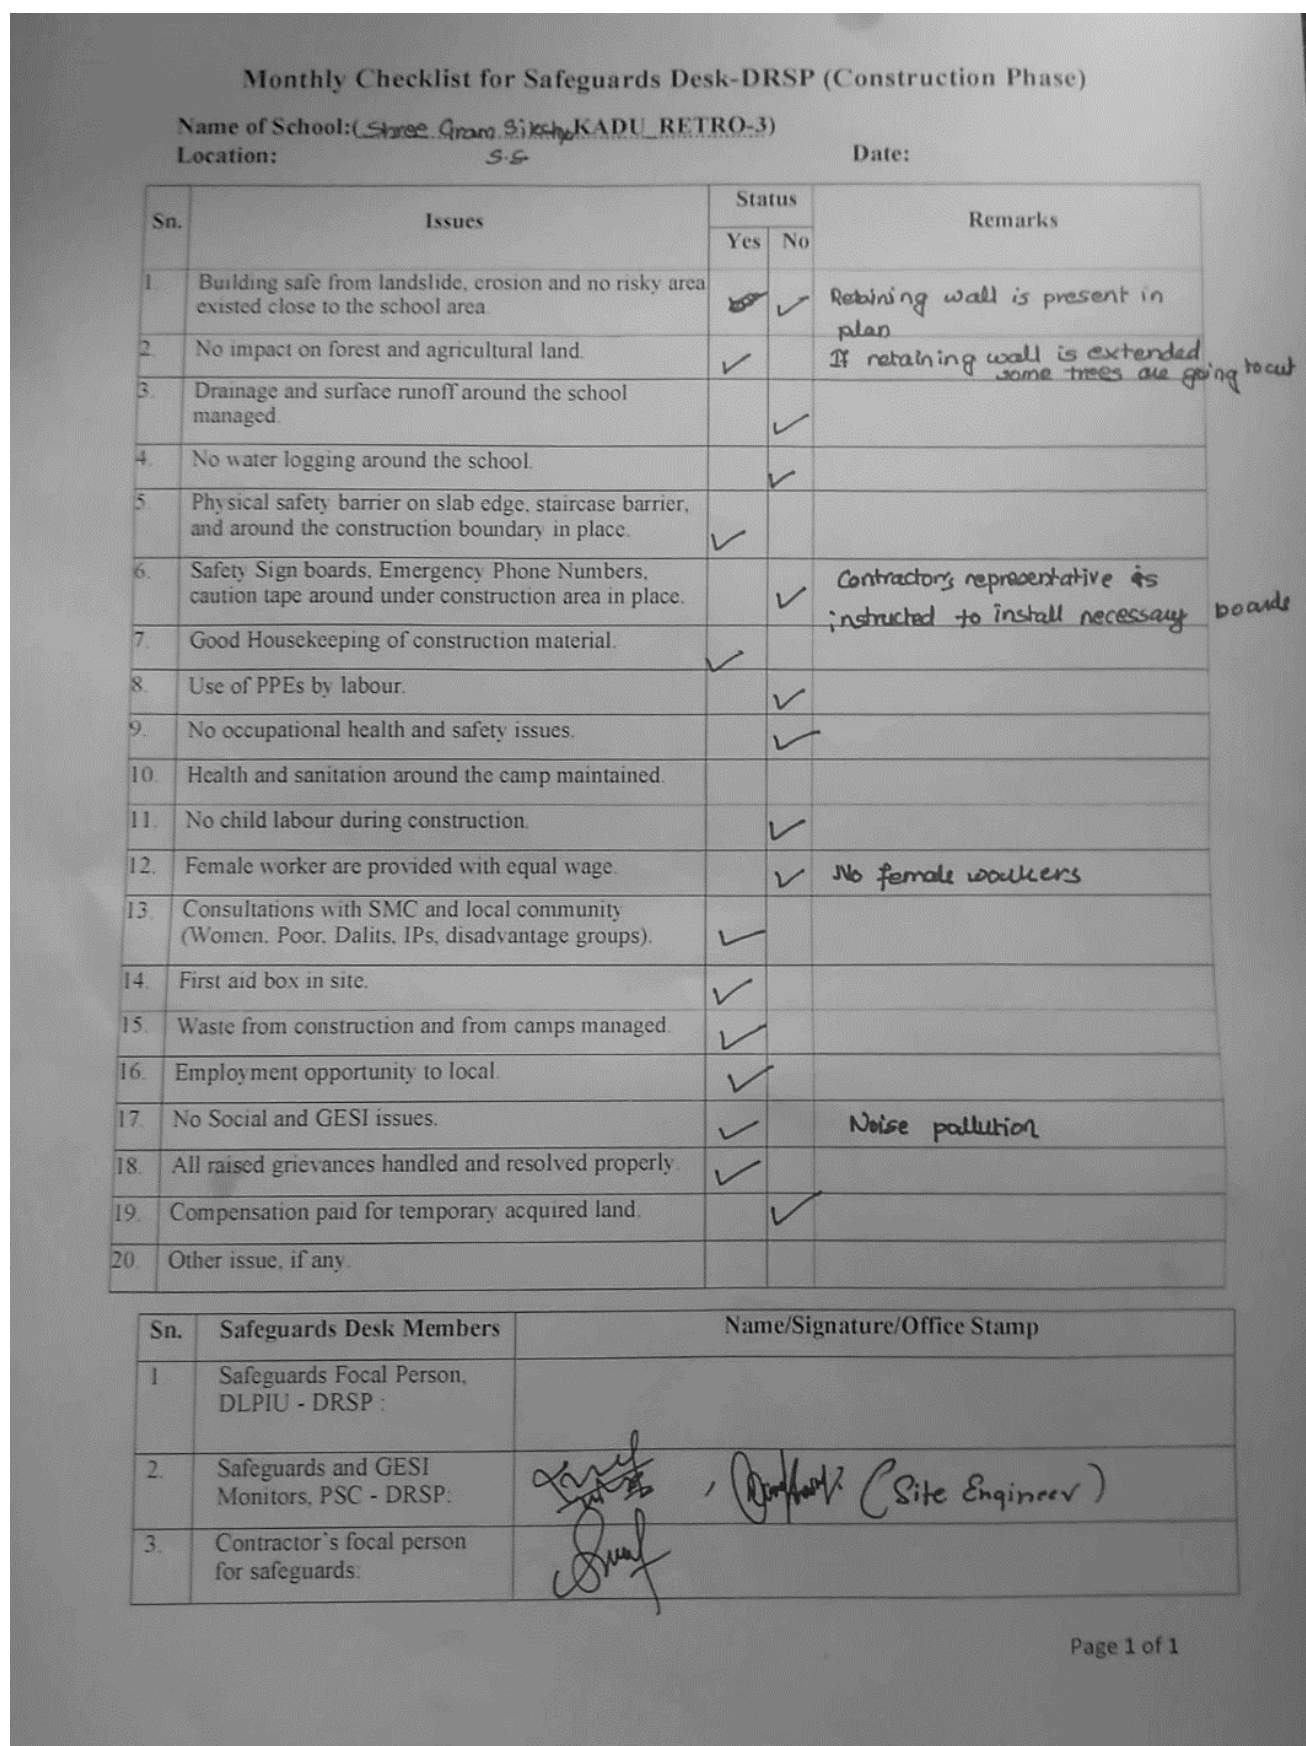 Monthly Checklist for Safeguards Desk-DRSP (Construction Phase)
Name of School:(Shree Gram Sikshya KADU_RETRO-3)
Location: S.S Date:
Sn. Issues Status Remarks
Yes No
1. Building safe from landslide, erosion and no risky area
existed close to the school area. ✓ Retaining wall is present in
plan
2. No impact on forest and agricultural land. ✓ If retaining wall is extended
some trees are going to cut
3. Drainage and surface runoff around the school
managed. ✓
4. No water logging around the school. ✓
5. Physical safety barrier on slab edge, staircase barrier,
and around the construction boundary in place. ✓
6. Safety Sign boards, Emergency Phone Numbers, Contractor's representative is
caution tape around under construction area in place. ✓ instructed to install necessary boards
7. Good Housekeeping of construction material. ✓
8. Use of PPEs by labour. ✓
9. No occupational health and safety issues. ✓
10. Health and sanitation around the camp maintained.
11. No child labour during construction. ✓
12. Female worker are provided with equal wage. ✓ No female workers
13. Consultations with SMC and local community
(Women, Poor, Dalits, IPs, disadvantage groups). ✓
14. First aid box in site. ✓
15. Waste from construction and from camps managed. ✓
16. Employment opportunity to local. ✓
17. No Social and GESI issues. ✓ Noise pollution
18. All raised grievances handled and resolved properly. ✓
19. Compensation paid for temporary acquired land. ✓
20. Other issue, if any.
Sn. Safeguards Desk Members Name/Signature/Office Stamp
1. Safeguards Focal Person,
DLPIU - DRSP :
2. Safeguards and GESI
Monitors, PSC - DRSP: , (Site Engineer)
3. Contractor's focal person
for safeguards:
Page 1 of 1